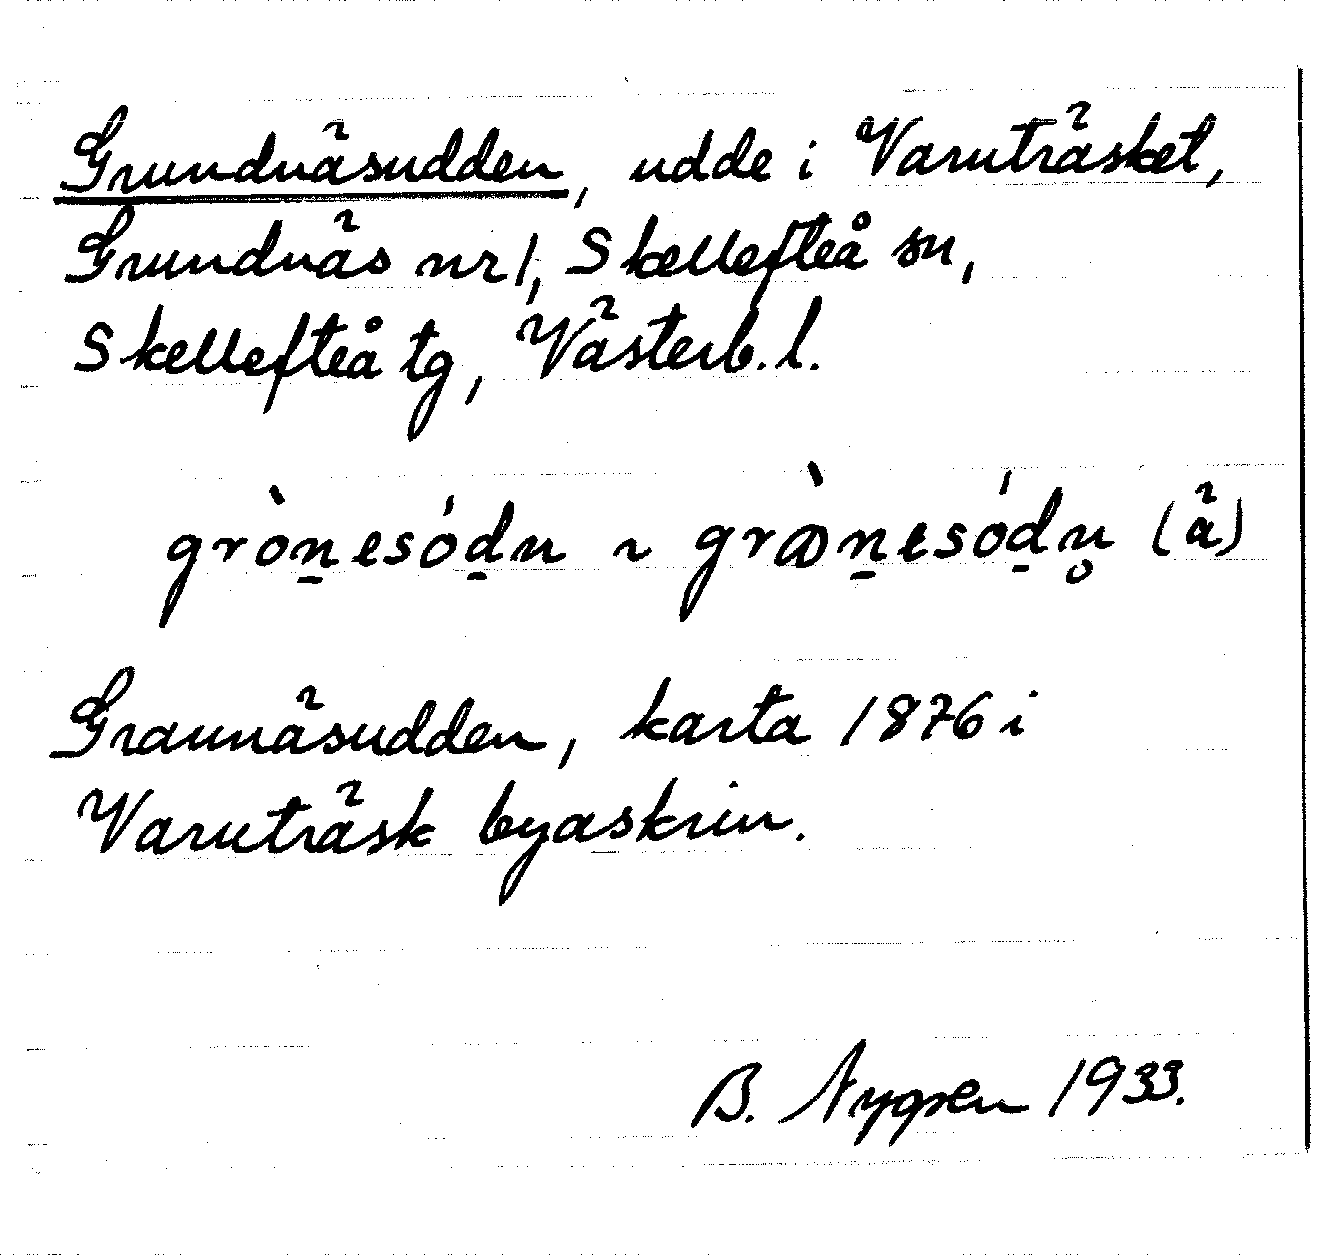 Grundnäsudden, udde i Varuträsket,
Grundnäs nr 1, Skellefteå sn,
Skellefteå tg, Västerb. l.
gròn̲esód̲n ~ gròn̲esód̲n̥ (ä)
Graunäsudden, karta 1876 i
Varuträsk byaskrin.
B. Nygren 1933.